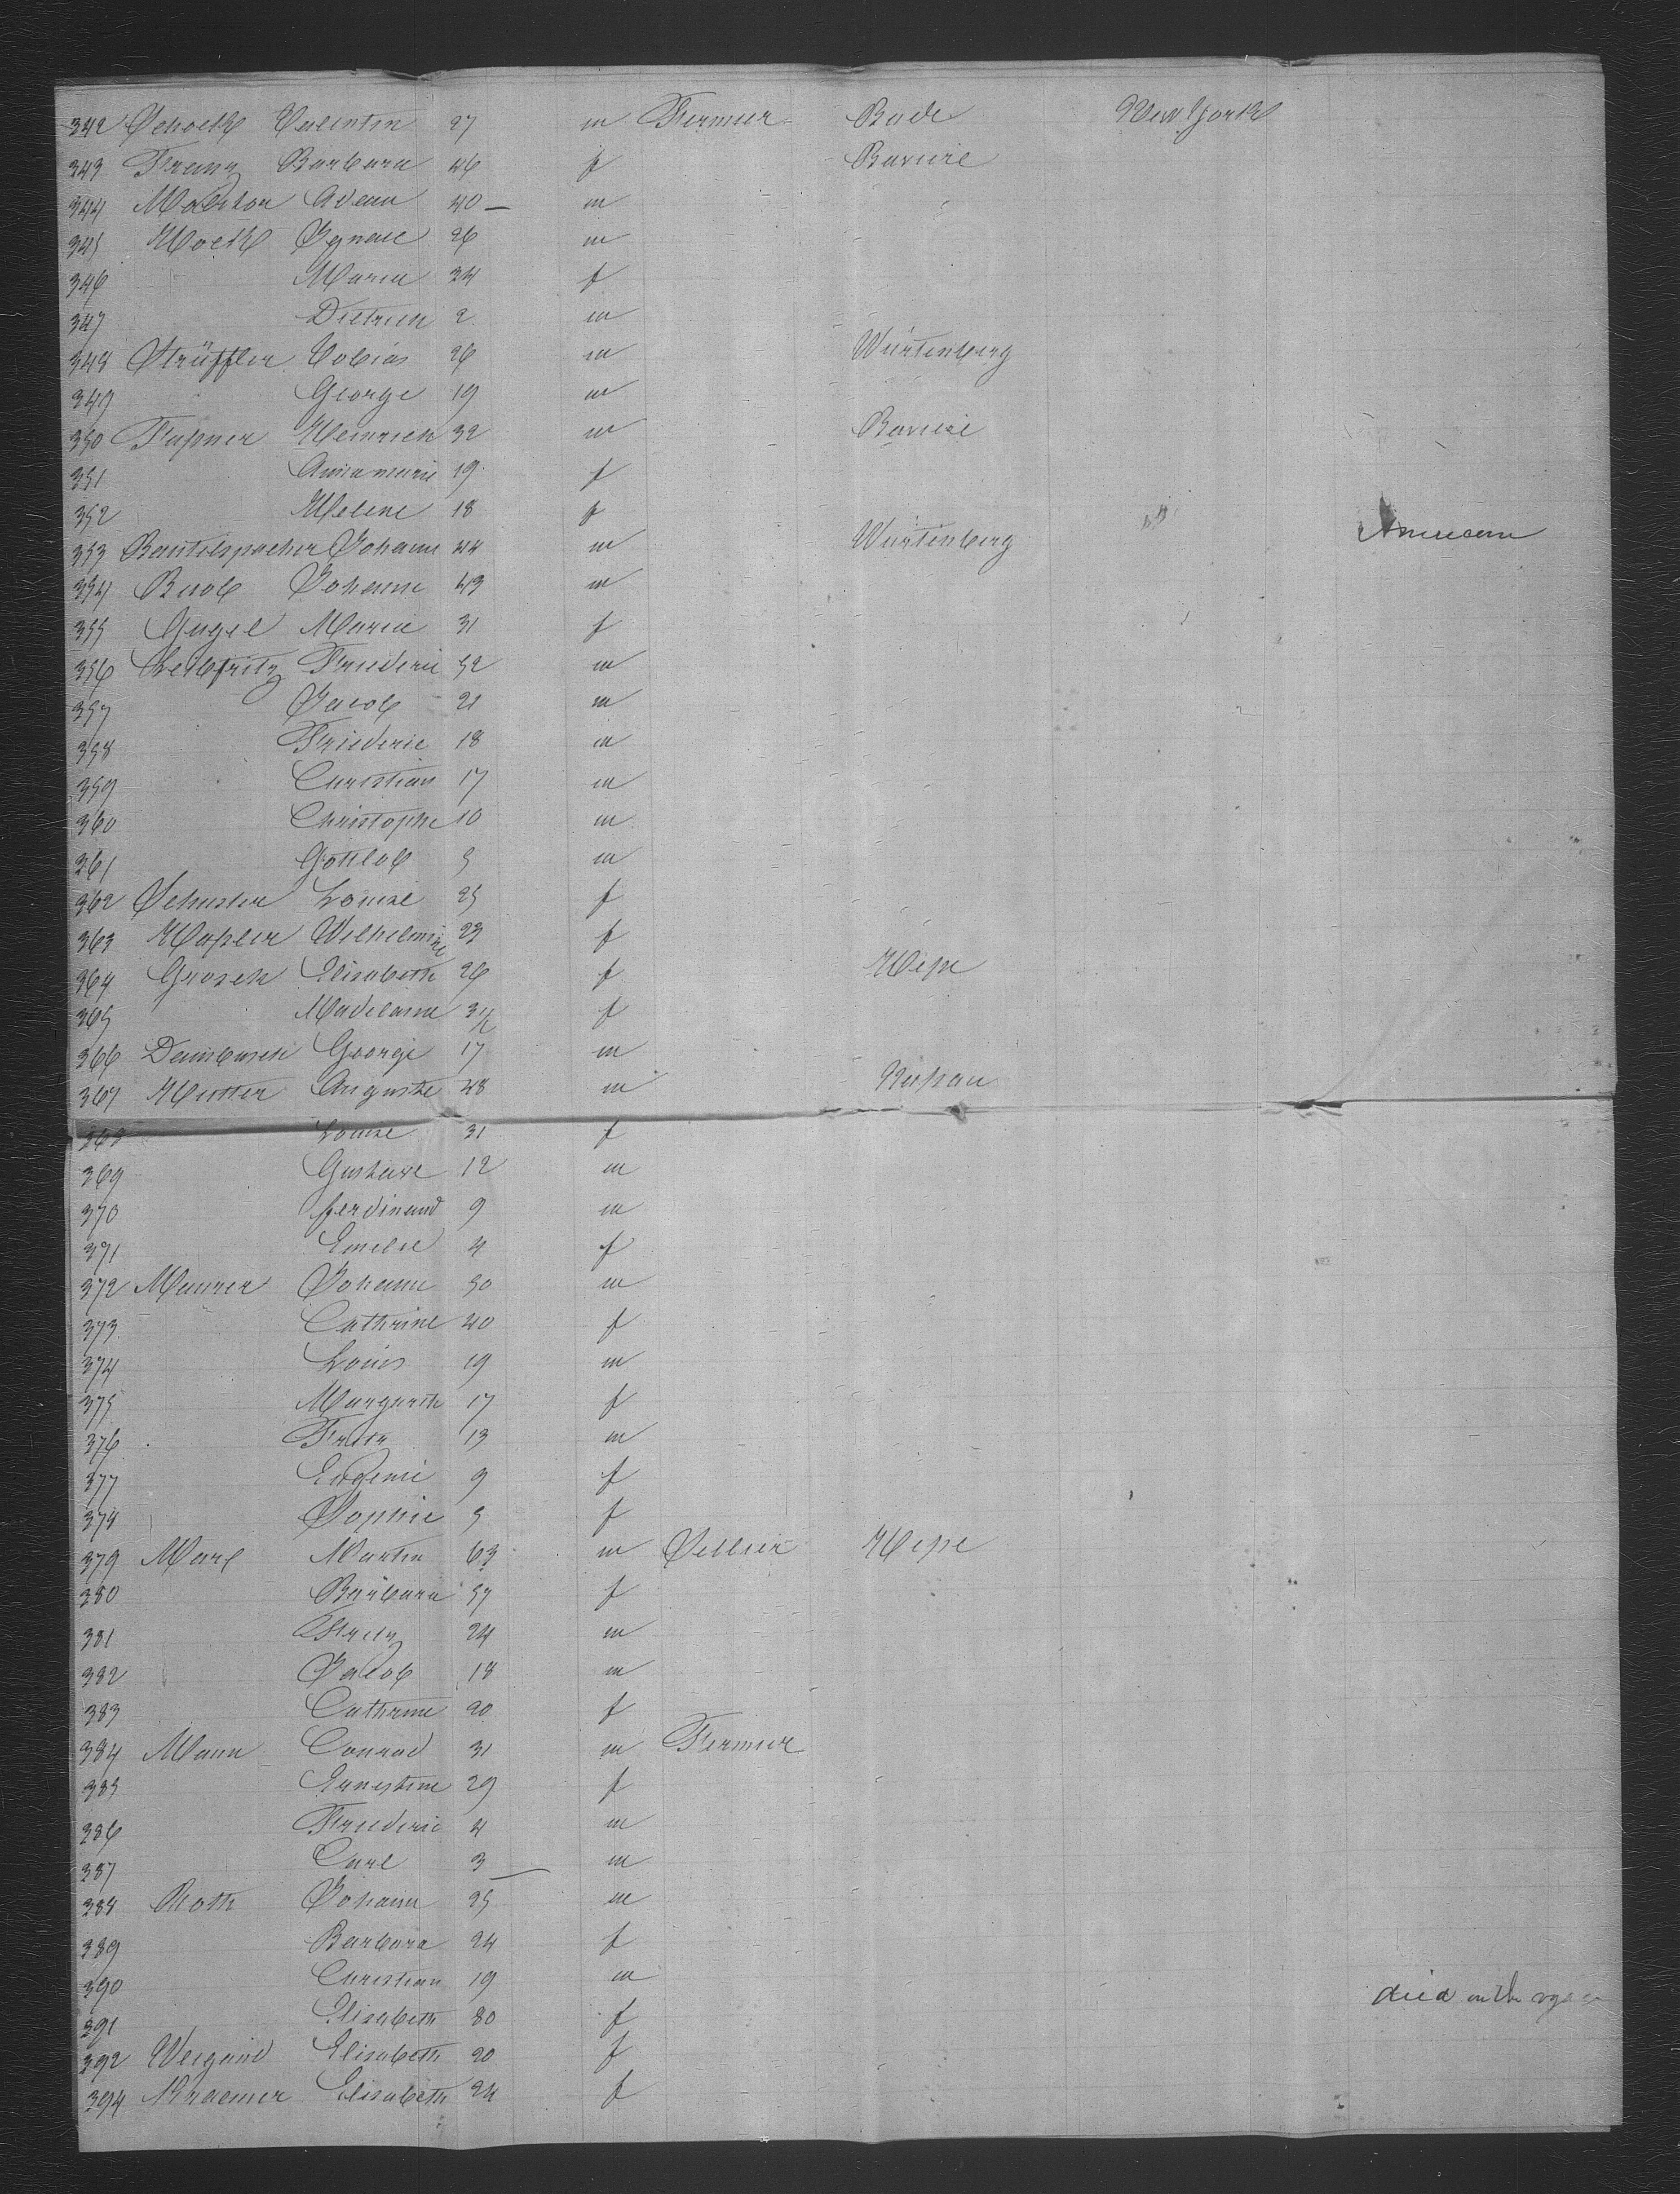 342 Schoelk Valentin 27 m Fermier Bade New York
343 Franz Barbara 46 f Baviere
344 Adam 40 m
345 Hoelk Ignace 26 m
346 Maria 24 f
347 Dietrich 2 m
348 Strüffler Tobias 26 m Würtenberg
349 George 19 m
350 Faßner Heinrich 32 m Baviere
351 Annamarie 19 f
352 Helene 18 f
353 Bautelspacher Johann 44 m Würtenberg American
354 Buob Johann 43 m
355 Gugel Marie 31 f
356 Leibfritz Friederic 52 m
357 Jacob 21 m
358 Friederic 18 m
359 Christian 17 m
360 Christophe 10 m
361 Gottlob 5 m
362 Schuster Louise 25 f
363 Haßler Wilhelmine 23 f
364 Grosch Elisabeth 26 f Heße
365 Madelaine 3/12 f
366 Dambach George 17 m
367 Hutter Auguste 48 m Naßau
368 Louise 31 f
369 Gustave 12 m
370 ferdinand 9 m
371 Emelie 4 f
372 Maurer Johann 50 m
373 Cathrine 40 f
374 Louis 19 m
375 Margareth 17 f
376 Fritz 13 m
377 Eugenie 9 f
378 Sophie 5 f
379 Marx Martin 63 m Sellier Heße
380 Barbara 57 f
381 Fritz 24 m
382 Jacob 18 m
383 Cathrine 20 f
384 Mann Conrad 31 m Fermier
385 Ernestine 29 f
386 Friederic 4 m
387 Carl 3 m
388 Roth Johann 25 m
389 Barbara 24 f
390 Christian 19 m
391 Elisabeth 80 f died on the
392 Weigand Elisabeth 20 f
394 Kraemer Elisabeth 24 f